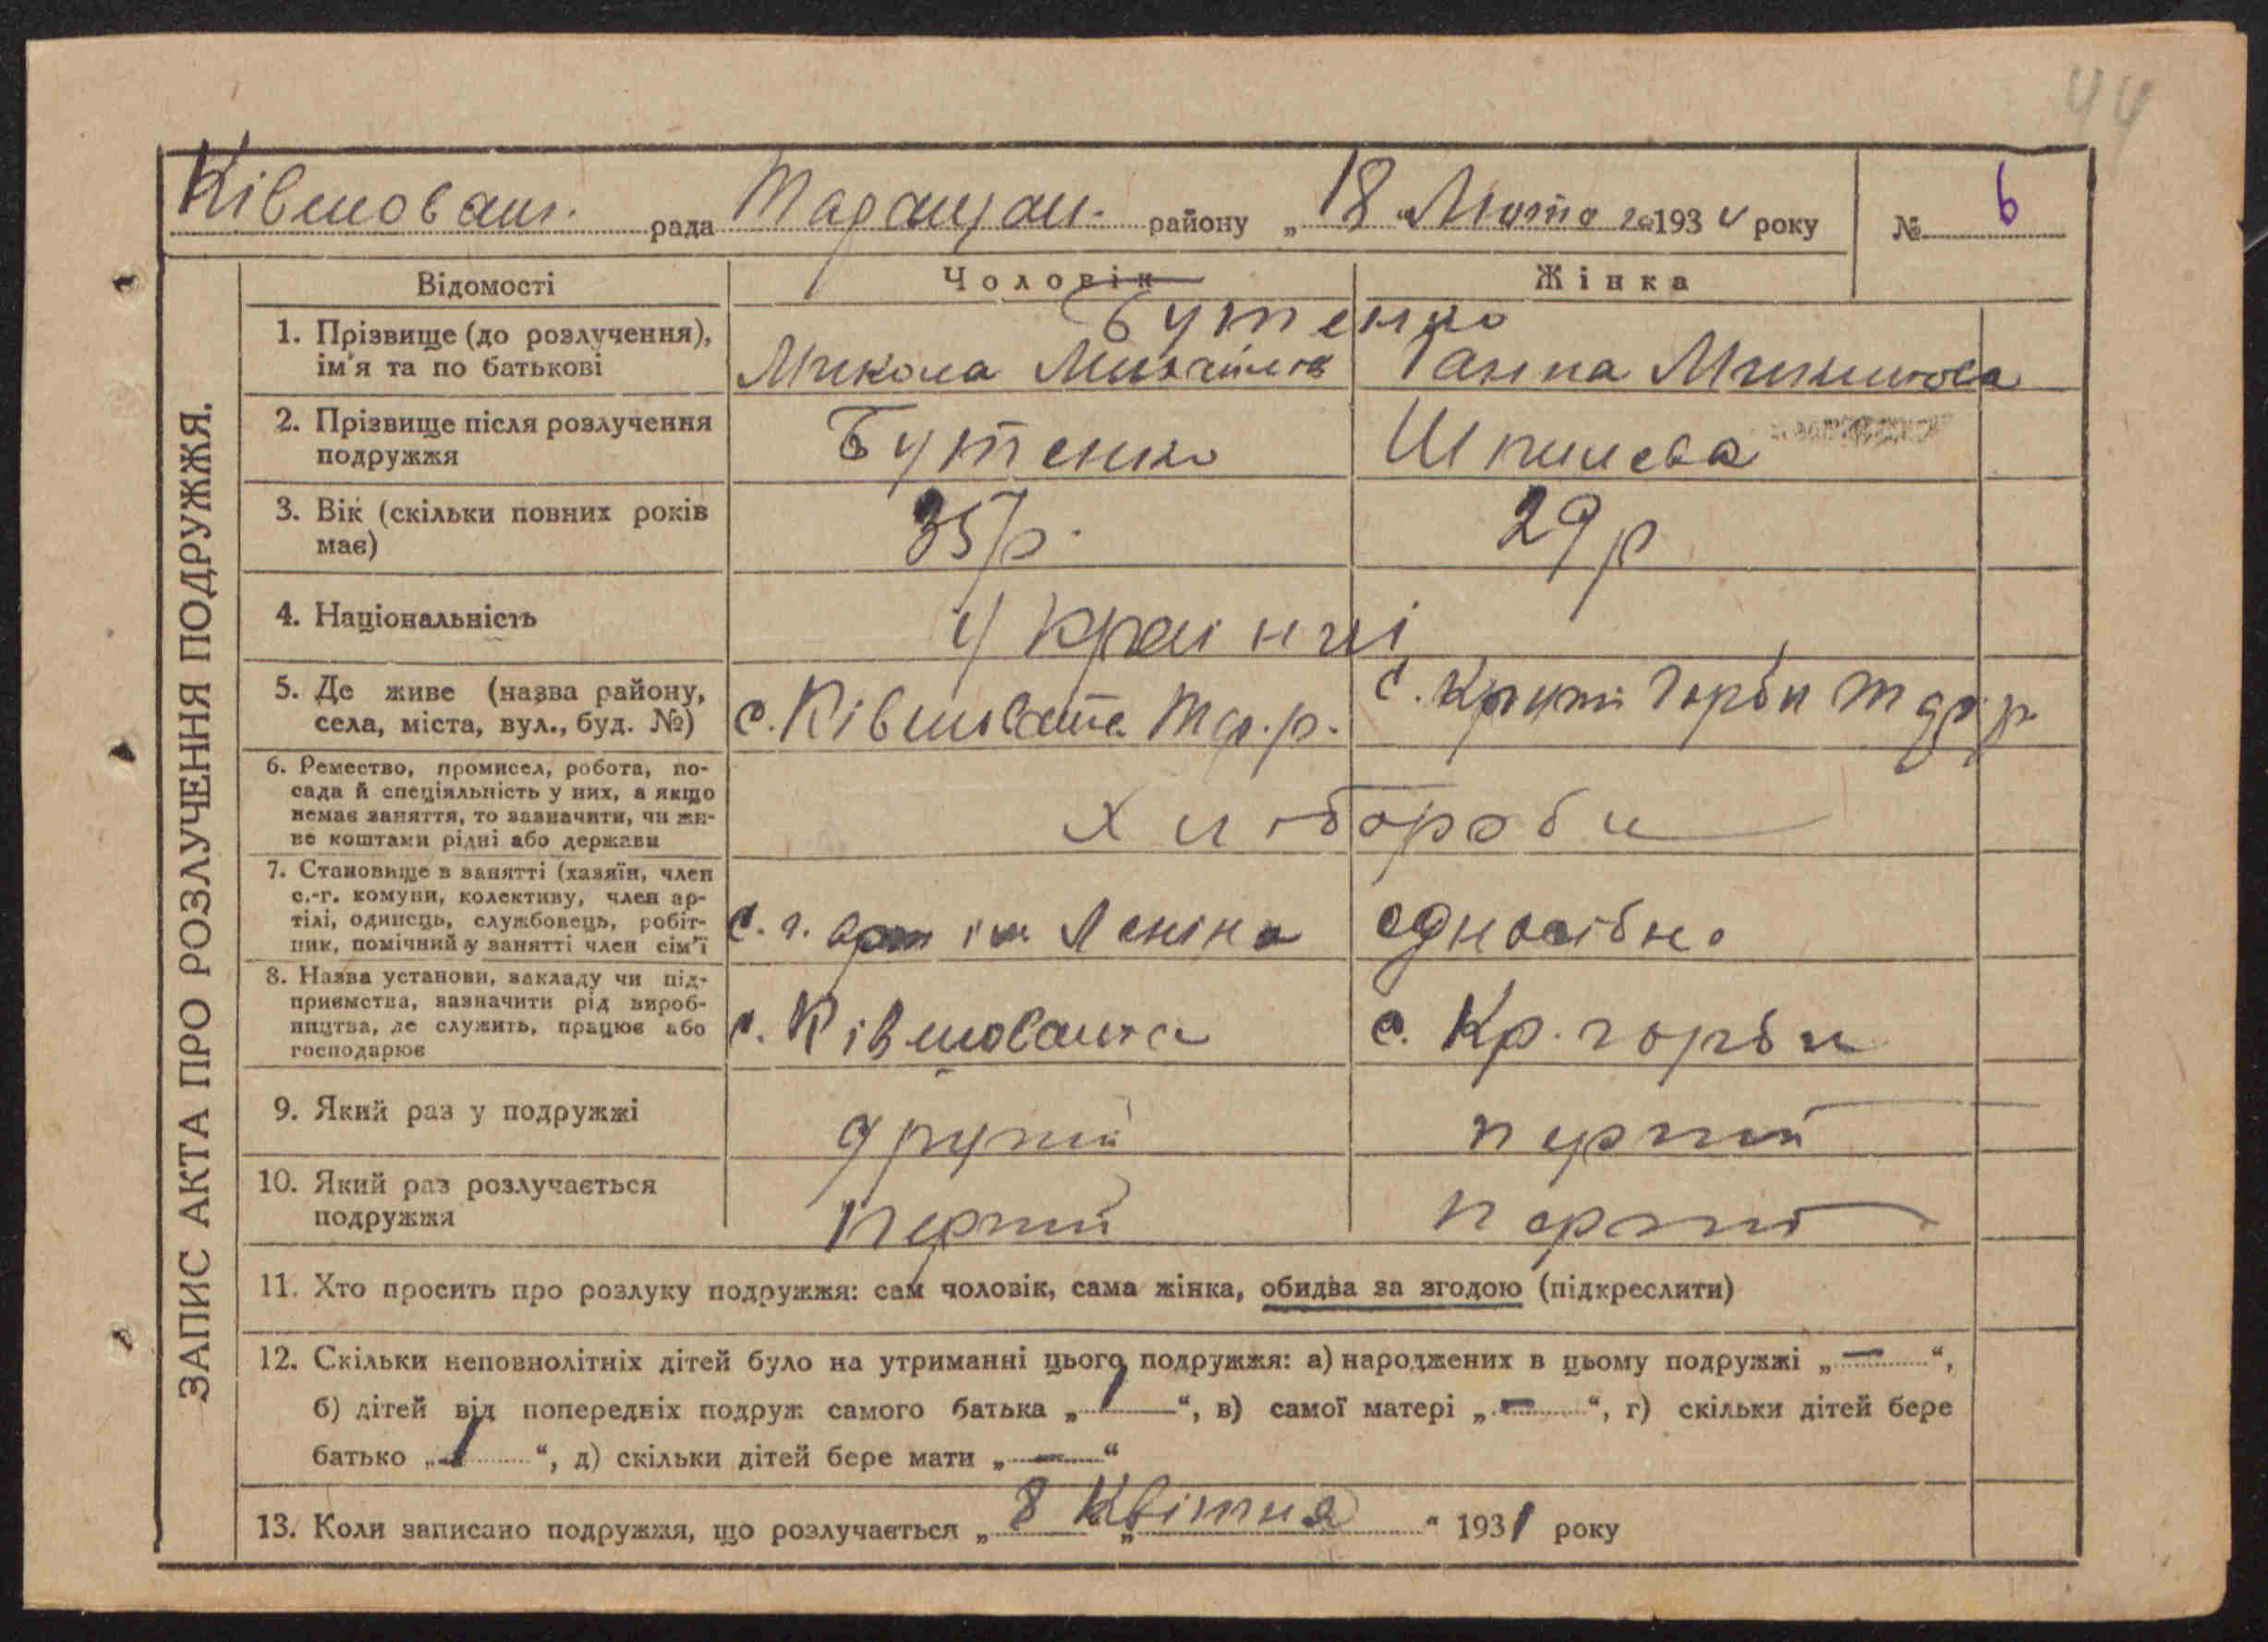 44
Ківшован. рада Таращан. району „18“ Лютого 1934 року № 6
ЗАПИС АКТА ПРО РОЗЛУЧЕННЯ ПОДРУЖЖЯ.
Відомості Чоловік Жінка
Бутенко
1. Прізвище (до розлучення), ім'я та по батькові Микола Ганна
2. Прізвище після розлучення подружжя Бутенко Шпилева
3. Вік (скільки повних років має) 35 р. 29 р
4. Національність Україн
5. Де живе (назва району, села, міста, вул., буд. №) с. Ківшовата Тар. р. с. Круті Горби Тар. р
6. Ремество, промисел, робота, по-
сада й спеціяльність у них, а якщо
немає заняття, то зазначити, чи жи-
ве коштами рідні або держави
хлібороби
7. Становище в занятті (хазяїн, член
с.-г. комуни, колективу, член ар-
тілі, одинець, службовець, робіт-
ник, помічний у занятті член сім'ї
с. г. арт ім Леніна одноосібно
8. Назва установи, закладу чи під-
приємства, зазначити рід вироб-
ництва, де служить, працює або
господарює
с. Ківшовата с. Кр. горби
9. Який раз у подружжі другий перший
10. Який раз розлучається подружжя перший перший
11. Хто просить про розлуку подружжя: сам чоловік, сама жінка, обидва за згодою (підкреслити)
12. Скільки неповнолітніх дітей було на утриманні цього подружжя: а) народжених в цьому подружжі „—“,
б) дітей від попередніх подруж самого батька „1“, в) самої матері „—“, г) скільки дітей бере
батько „1“, д) скільки дітей бере мати „—“
13. Коли записано подружжя, що розлучається „8 Квітня“ 1931 року